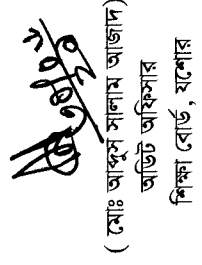 ( মোঃ আব্দুস সালাম আজাদ)
অডিট অফিসার
শিক্ষা বোর্ড, যশোর